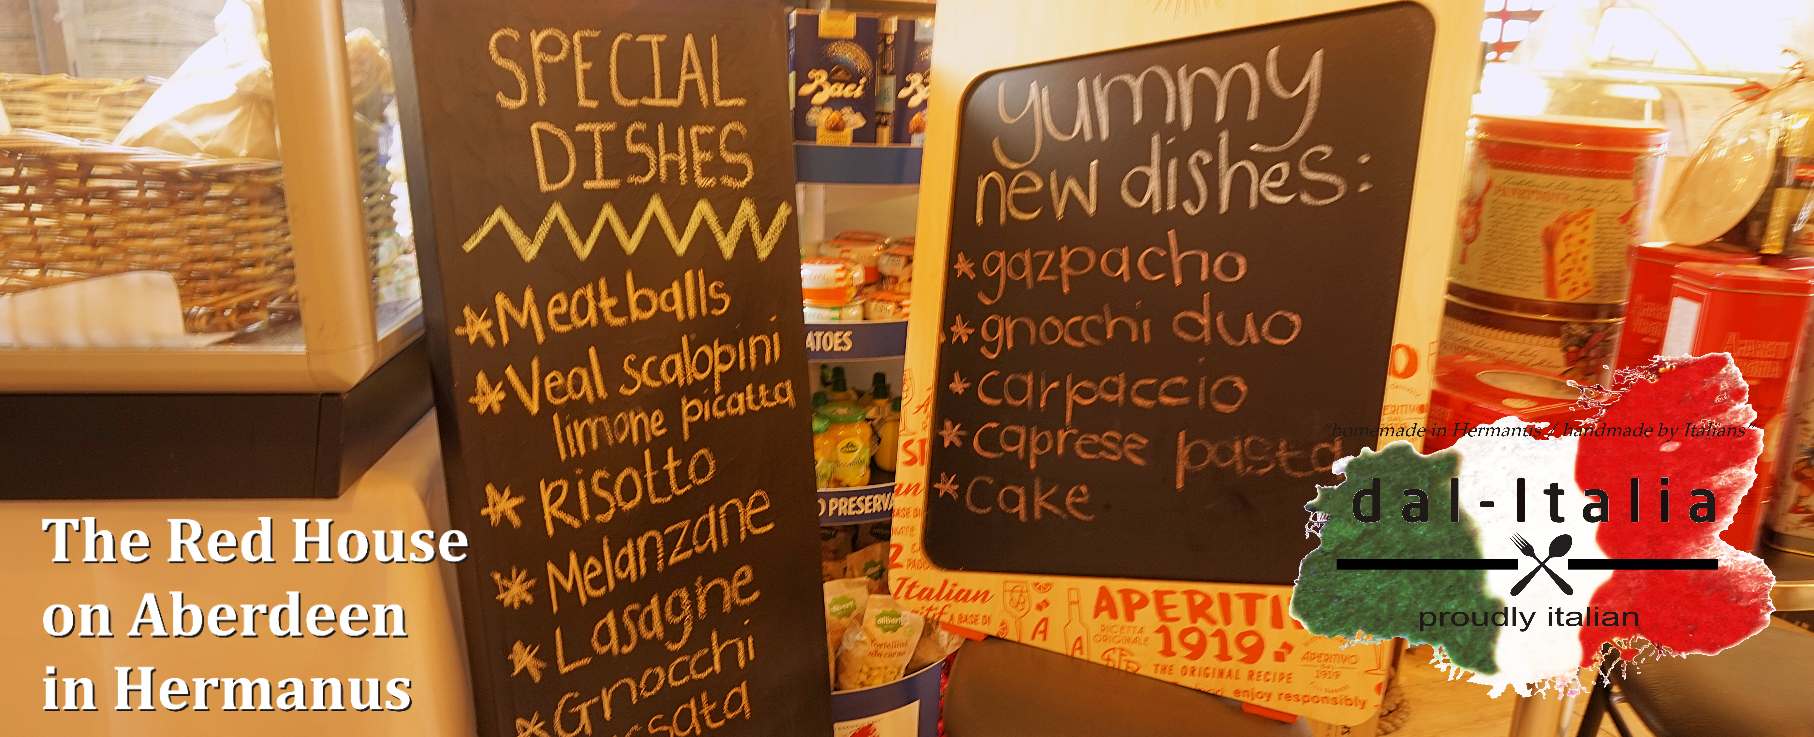 SPECIAL
DISHES
*Meatballs
*Veal scalopini
limone picatta
*Risotto
*Melanzane
*Lasagne
*Gnocchi
Baci
ATOES
yummy
new dishes:
*gazpacho
*gnocchi duo
*carpaccio
*caprese pasta
*cake
Italian
A BASE DI
RICETTA
ORIGINALE
A
APERITI
1919
THE ORIGINAL RECIPE
APERITIVO
1919
enjoy responsibly
PANETTONE
"homemade in Hermanus / handmade by Italians"
dal-Italia
proudly italian
The Red House
on Aberdeen
in Hermanus